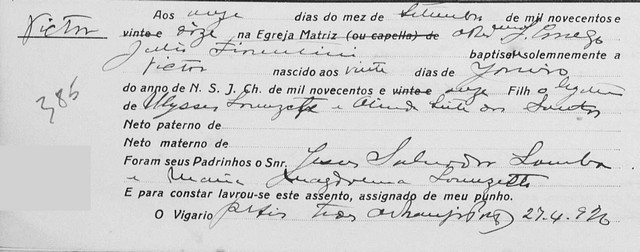 Victor
Aos onze dias do mez de Setembro de mil novecentos e
vinte e doze na Egreja Matriz (ou capella) de o Rev.mo S. Conego
Julio Fiorentini baptisei solemnemente a
Victor nascido aos vinte dias de
do anno de N. S. J. Ch. de mil novecentos e vinte e onze Filh o legitimo
de Ulysses Lorenzetti e Olinda Leite dos Santos
Neto paterno de
386
Neto materno de
Foram seus Padrinhos o Snr. Jesus Salvador Lomba
e Maria Magdalena Lorenzetti
E para constar lavrou-se este assento, assignado de meu punho.
O Vigario 27.4.926